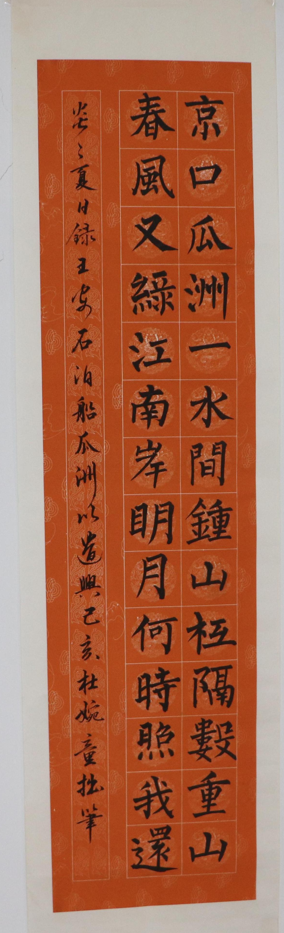 京口瓜洲一水間鍾山柢隔數重山
春風又綠江南岸明月何時照我還
炎々夏日録王安石泊船瓜洲以遣興己亥杜婉童拙筆